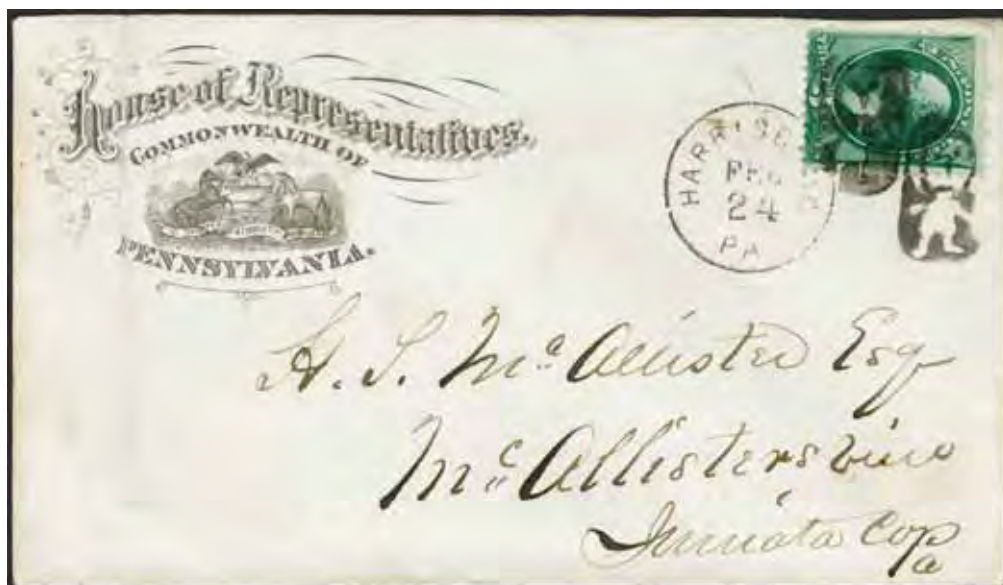 House of Representatives.
COMMONWEALTH OF
PENNSYLVANIA.
HARRISBURG
FEB
24
PA
H. S. McAllister Esq
McAllistersville
Juniata Co Pa